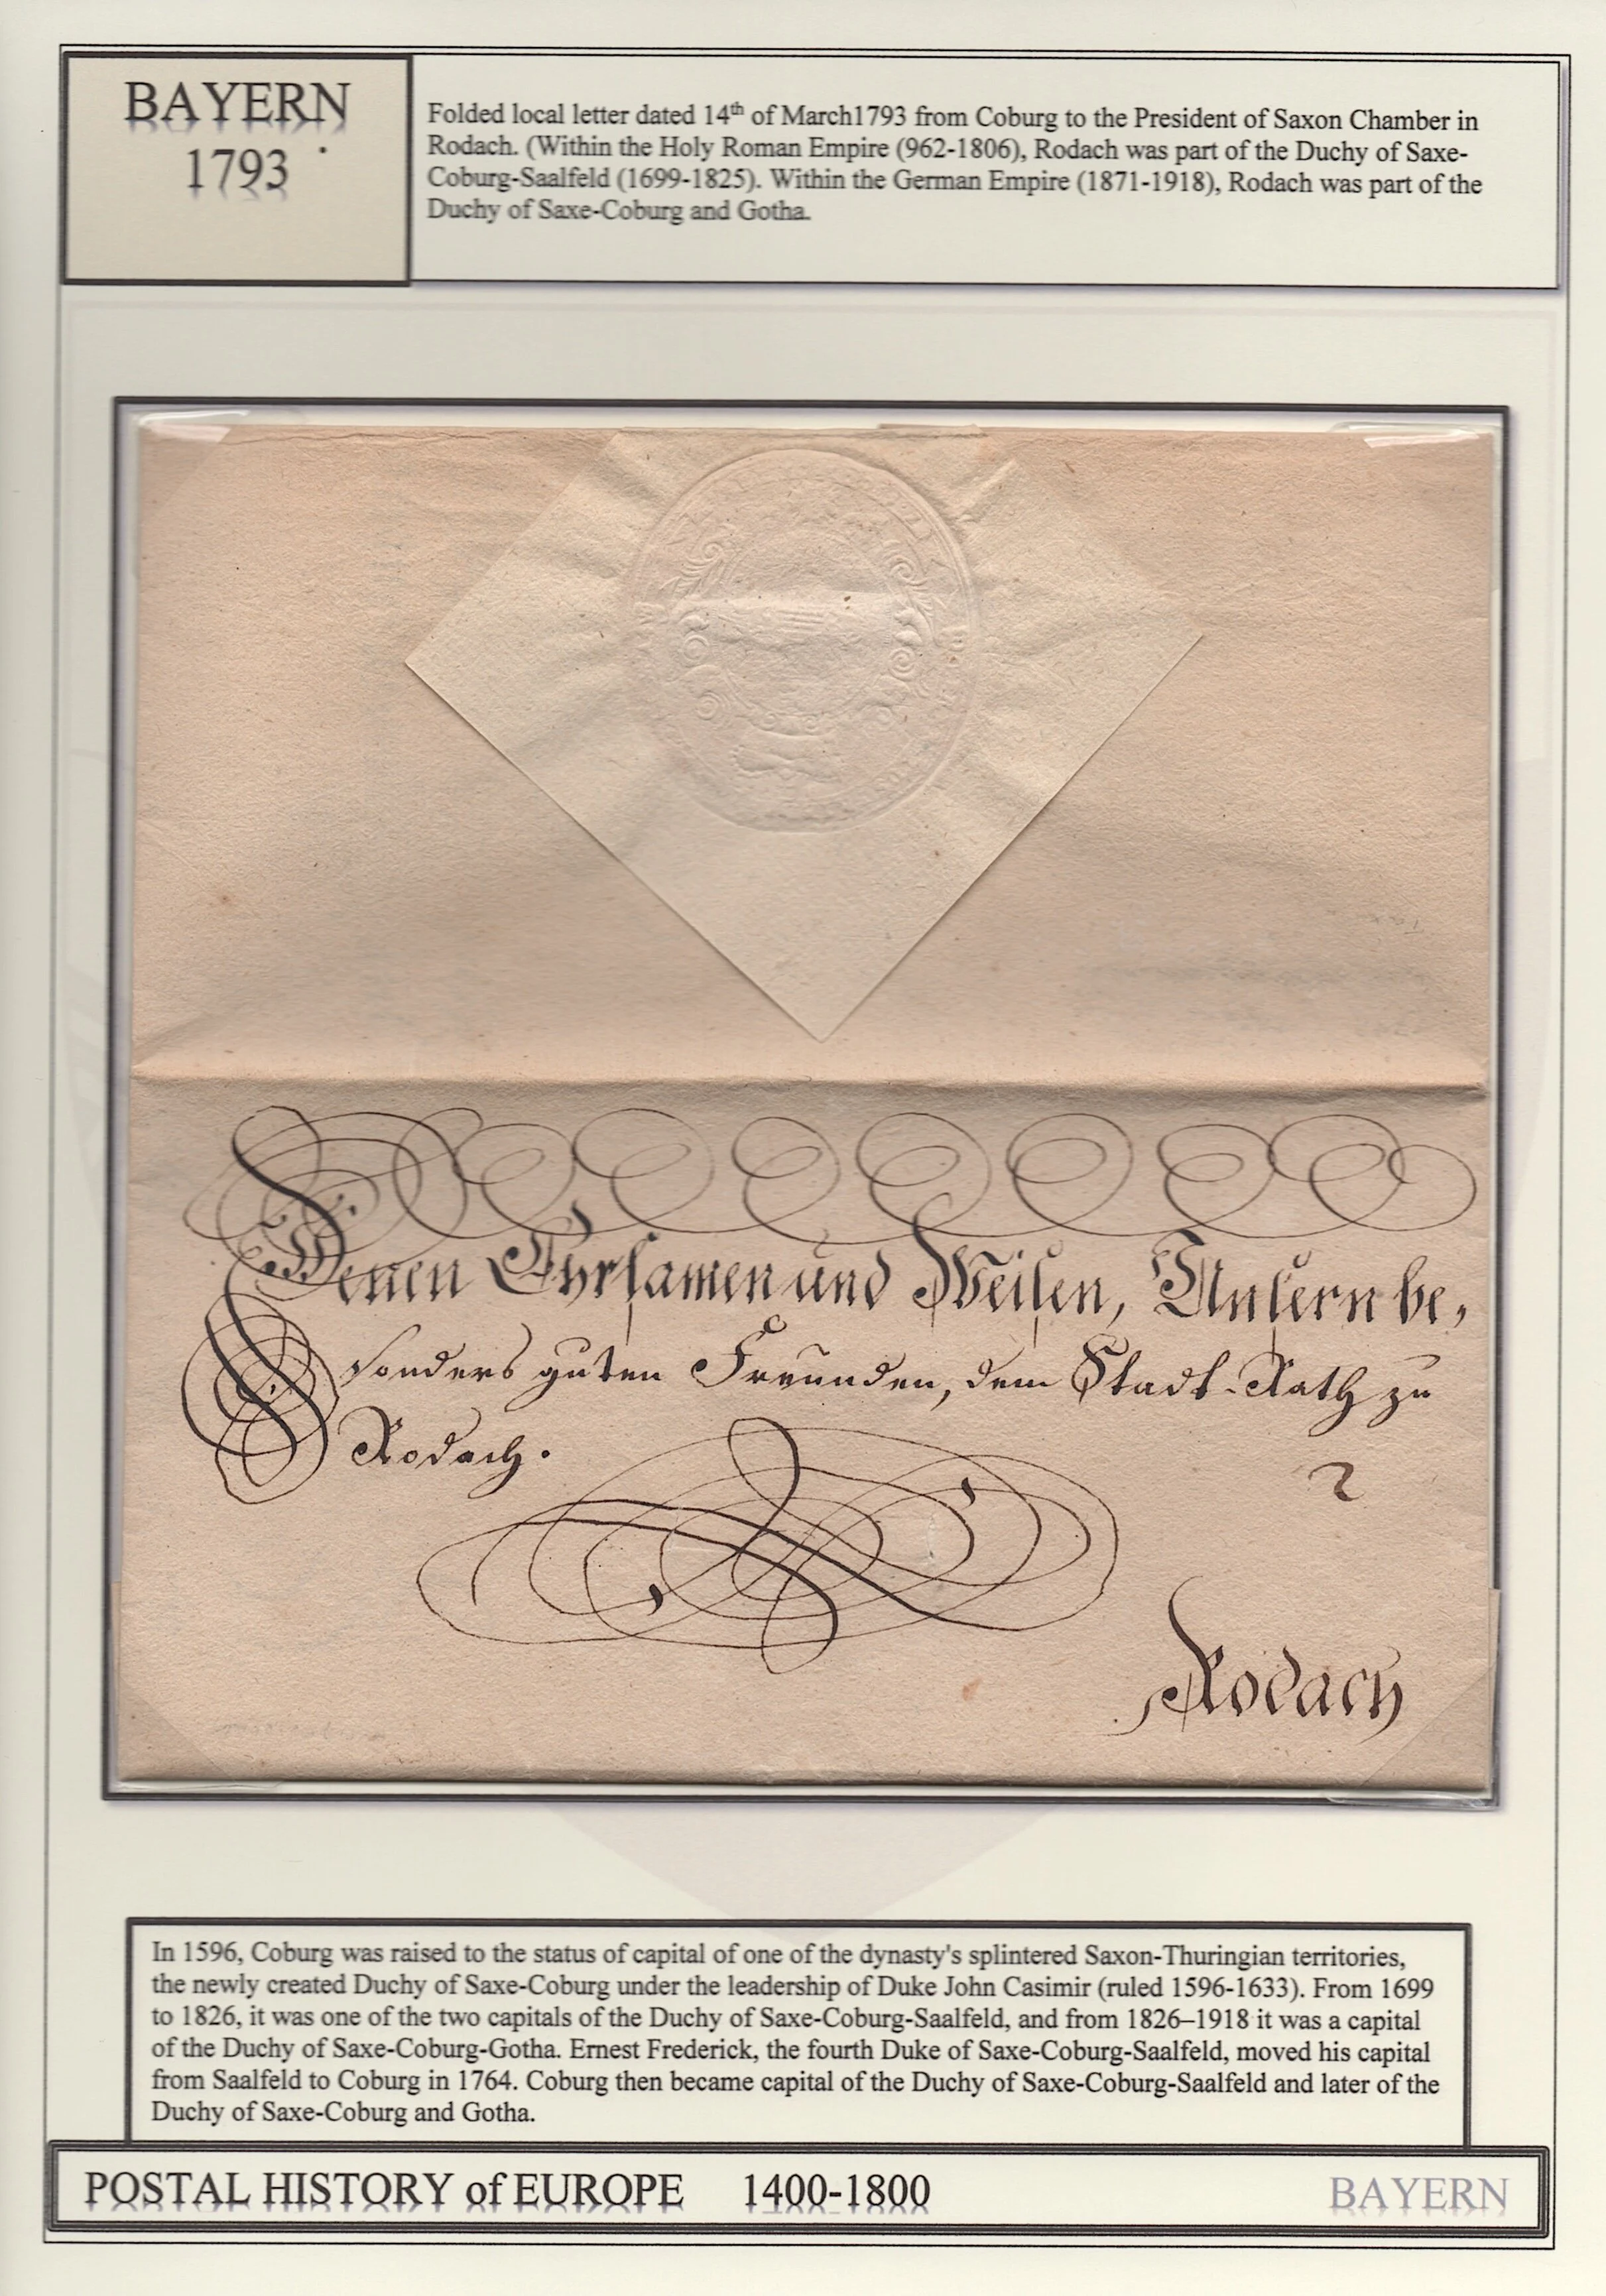 BAYERN
1793
Folded local letter dated 14th of March1793 from Coburg to the President of Saxon Chamber in
Rodach. (Within the Holy Roman Empire (962-1806), Rodach was part of the Duchy of Saxe-
Coburg-Saalfeld (1699-1825). Within the German Empire (1871-1918), Rodach was part of the
Duchy of Saxe-Coburg and Gotha.
Denen Ehrsamen und Weisen, Unsern be,
sonders guten Freunden, dem Stadt-Rath zu
Rodach.
Rodach
In 1596, Coburg was raised to the status of capital of one of the dynasty's splintered Saxon-Thuringian territories,
the newly created Duchy of Saxe-Coburg under the leadership of Duke John Casimir (ruled 1596-1633). From 1699
to 1826, it was one of the two capitals of the Duchy of Saxe-Coburg-Saalfeld, and from 1826–1918 it was a capital
of the Duchy of Saxe-Coburg-Gotha. Ernest Frederick, the fourth Duke of Saxe-Coburg-Saalfeld, moved his capital
from Saalfeld to Coburg in 1764. Coburg then became capital of the Duchy of Saxe-Coburg-Saalfeld and later of the
Duchy of Saxe-Coburg and Gotha.
POSTAL HISTORY of EUROPE 1400-1800 BAYERN